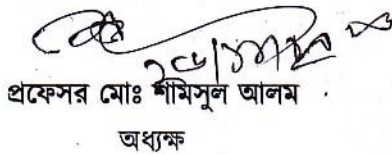 প্রফেসর মোঃ শামিসুল আলম
অধ্যক্ষ